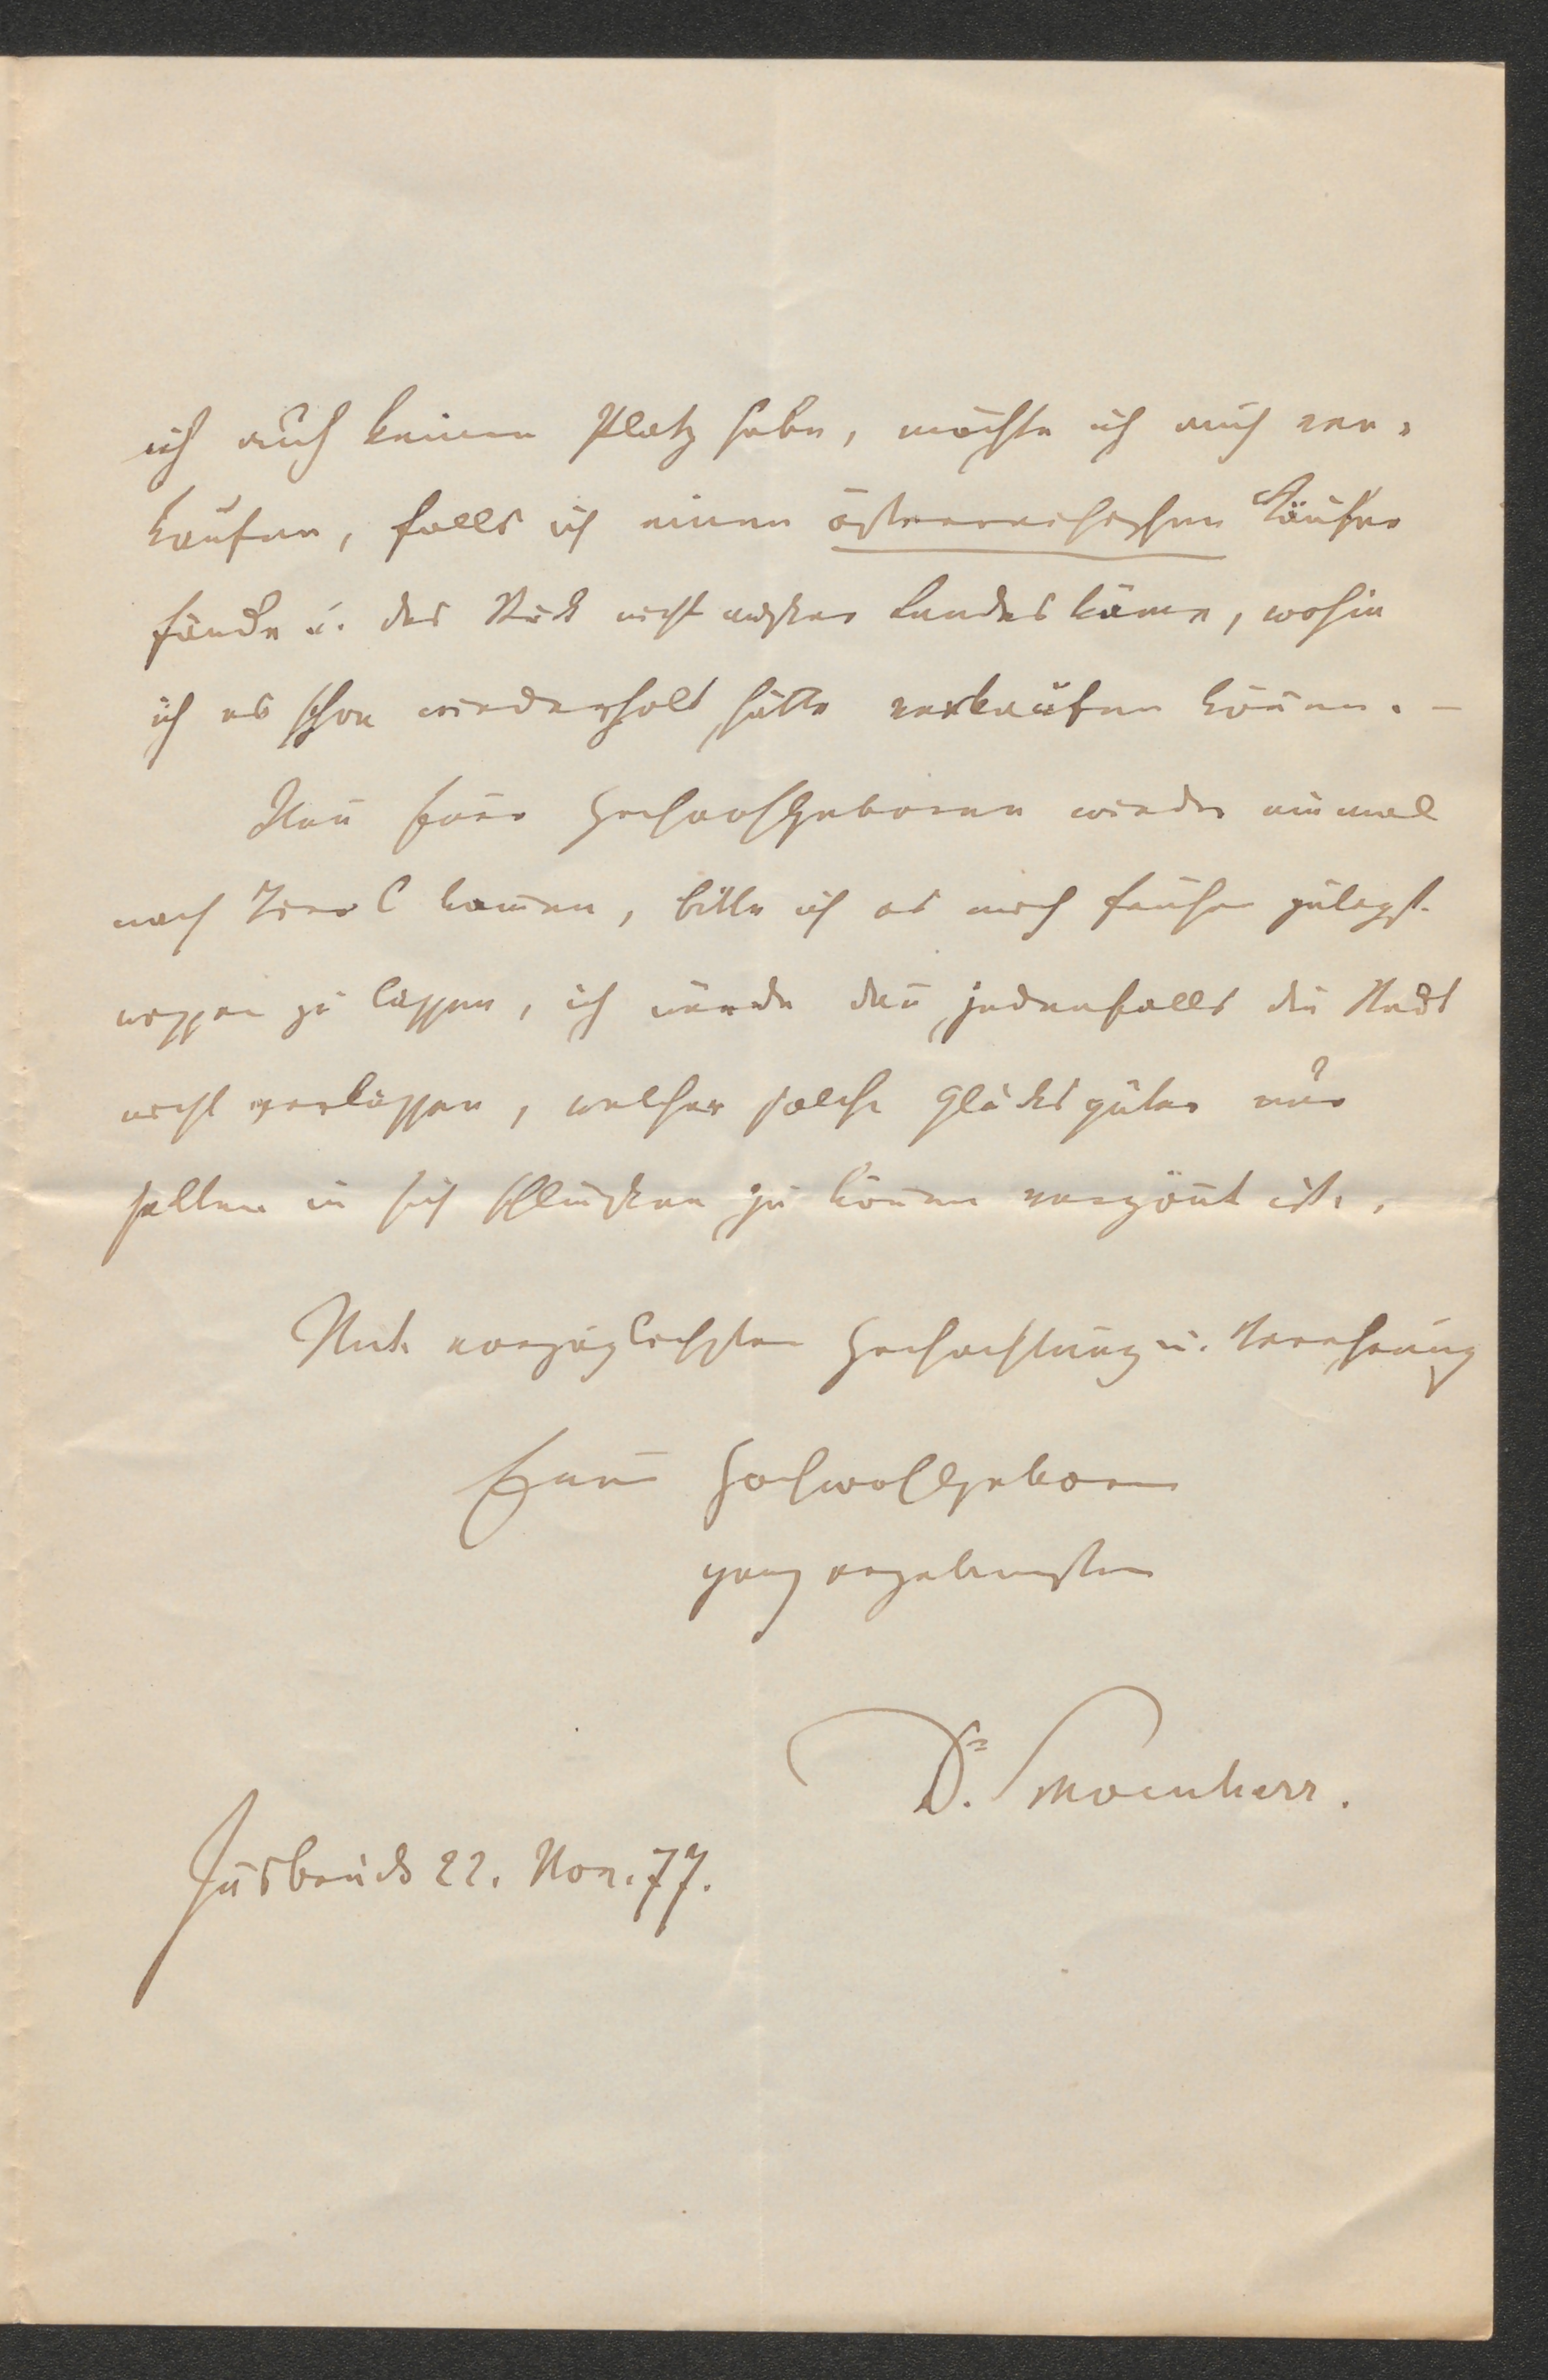 ich auch keinen Platz habe, möchte ich auch ver-
kaufen, falls ich einen österreichischen Käufer
fände u. das Stück nicht außer Landes käme, wohin
ich es schon wiederholt hätte verkaufen können. –
Wen̄ Euer Hochwohlgeboren wieder einmal
nach Tirol kom̄en, bitte ich es mich früher
wissen zu lassen, ich würde dan̄ jedenfalls die Stadt
nicht verlassen, welcher solche Glücksgüter nur
selten in sich schließen zu kön̄en vergön̄t ist.
Mit vorzüglichster Hochachtung u. Verehrung
Euer Hochwohlgeboren
ganz ergebenster
Dr. Schoenherr.
In̄sbruck 22. Nov. 77.